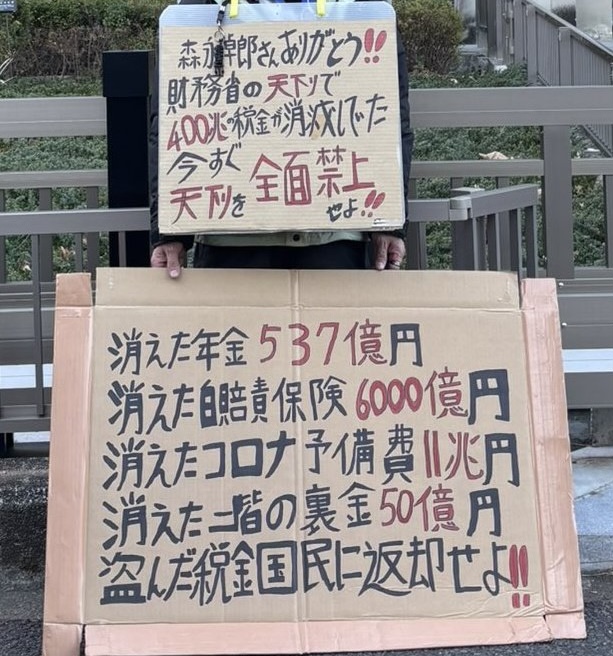 森永卓郎さんありがとう!!
財務省の天下りで
400兆の税金が消滅してた
今すぐ
天下りを全面禁止
せよ!!
消えた年金537億円
消えた自賠責保険6000億円
消えたコロナ予備費11兆円
消えた二階の裏金50億円
盗んだ税金国民に返却せよ!!